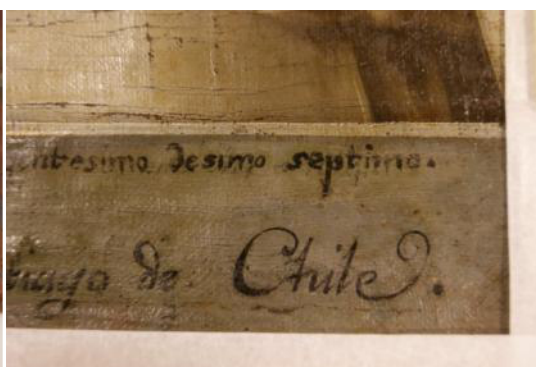 entesimo desimo septimo.
tiago de Chile.